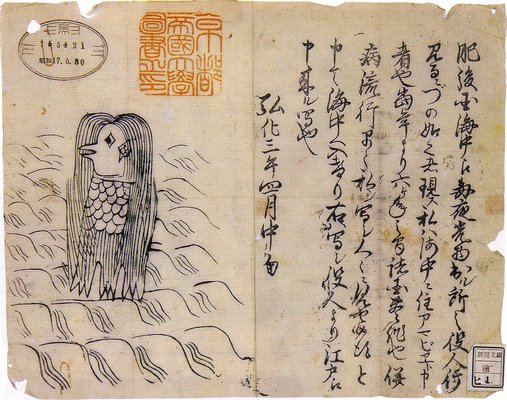 肥後国海中え毎夜光物出ル所之役人行
見るニづの如之者現ス私ハ海中ニ住アマビヱト申
者也当年より六ヶ年之間諸国豊作也併
病流行早々私シ写シ人々ニ見セ候得と
申て海中へ入けり右写シ役人より江戸え
申来ル写也
弘化三年四月中旬
京都
帝國大學
圖書之印
昭和17.6.30